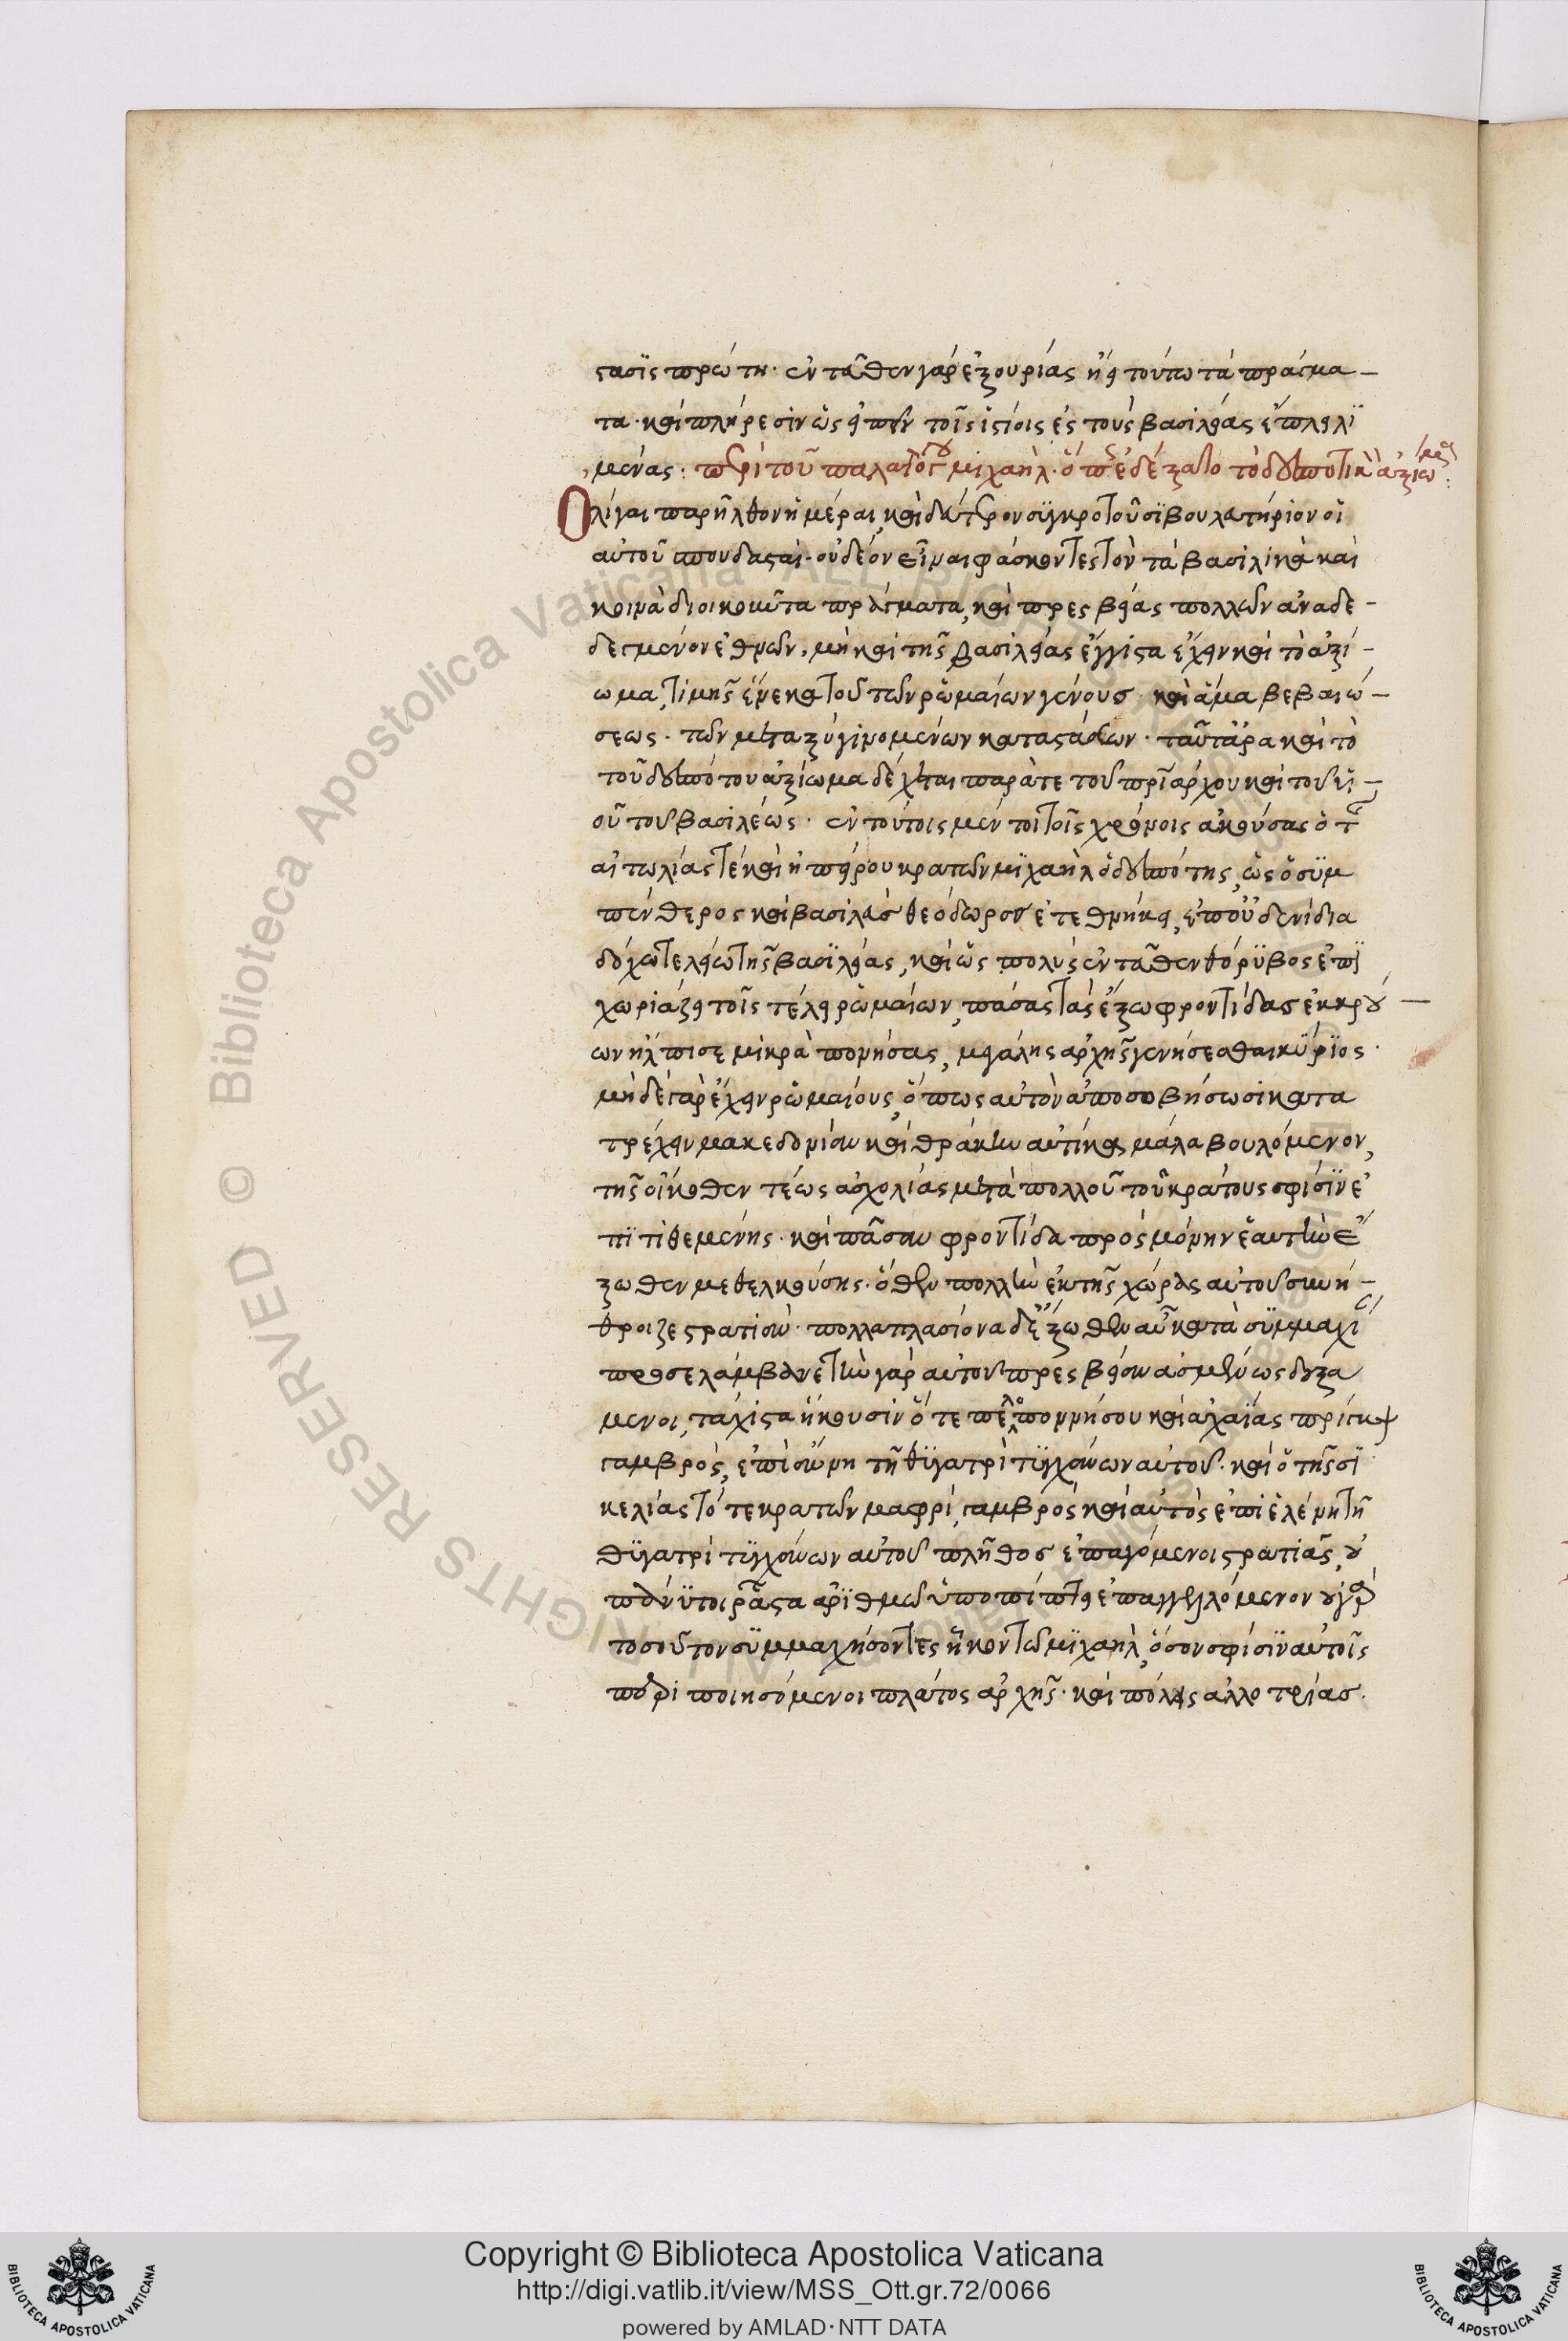 στασις πρώτη. ἐνταῦθεν γὰρ ἐξουρίας ἤει τούτω τὰ πράγμα-
τα. καὶ πλήρεσιν ὡς εἰπεῖν τοῖς ἱστίοις ἐς τοὺς βασιλείας ἔπλει λι
μένας: περὶ τοῦ παλαιολόγου μιχαὴλ. ὅπως ἐδέξατο τὸ δεσποτικὸν ἀξίωμα:
Ολίγαι παρῆλθον ἡμέραι, καὶ δεύτερον συγκροτοῦσι βουλευτήριον οἱ
αὐτοῦ σπουδασταὶ. οὐ δέον εἶναι φάσκοντες τὸν τὰ βασιλικὰ καὶ
κοινὰ διοικοῦντα πράγματα, καὶ πρεσβείας πολλῶν ἀναδε-
δεγμένον ἐθνῶν, μὴ καὶ τῆς βασιλείας ἔγγιστα ἔχειν καὶ τὸ ἀξί-
ωμα, τιμῆς ἕνεκα τοῦ τῶν ῥωμαίων γένους. καὶ ἅμα βεβαιώ-
σεως. τῶν μεταξὺ γινομένων καταστάσεων. ταῦτ' ἄρα καὶ τὸ
τοῦ δεσπότου ἀξίωμα δέχεται παρά τε τοῦ πατριάρχου καὶ τοῦ υἱ-
οῦ τοῦ βασιλέως. ἐν τούτοις μέν τοι τοῖς χρόνοις ἀκούσας ὁ τῆς
αἰτωλίας τὲ καὶ ἠπείρου κρατῶν μιχαὴλ ὁ δεσπότης, ὡς ὁ συμ
πένθερος καὶ βασιλεὺς θεόδωρος ἐτεθνήκει, ἐπ' οὐδενὶ δια
δόχω τελείω τῆς βασιλείας, καὶ ὡς πολὺς ἐνταῦθεν θόρυβος ἐπι
χωριάζει τοῖς τέλει ῥωμαίων, πάσας τὰς ἔξω φροντίδας ἐκκρού-
ων ἤλπισε μικρὰ πονήσας, μεγάλης ἀρχῆς γενήσεσθαι κύριος.
μὴ δὲ γὰρ ἔχειν ῥωμαίους, ὅπως αὐτὸν ἀποσοβήσωσι κατα
τρέχειν μακεδονίαν καὶ θράκην αὐτίκα μάλα βουλόμενον,
τῆς οἴκοθεν τέως ἀσχολίας μετὰ πολλοῦ τοῦ κράτους σφίσιν ἐ
πιτιθεμένης. καὶ πᾶσαν φροντίδα πρὸς μόνην ἑαυτὴν ἔ
ξωθεν μεθελκούσης. ὅθεν πολλὴν ἐκ τῆς χώρας αὐτοῦ συνή-
θροιζε στρατιάν. πολλαπλασίονα δ' ἔξωθεν αὖ κατὰ συμμαχίαν
προσελάμβανε τὴν γὰρ αὐτοῦ πρεσβείαν ἀσμένως δεξά
μενοι, τάχιστα ἥκουσιν ὅ τε πελοποννήσου καὶ ἀχαΐας πρίγκιψ
γαμβρὸς, ἐπ' ἄννη τῆ θυγατρὶ τυγχάνων αὐτοῦ. καὶ ὁ τῆς σι
κελίας τότε κρατῶν μαφρὲ, γαμβρὸς καὶ αὐτὸς ἐπὶ ἑλένη τῆ
θυγατρὶ τυγχάνων αὐτοῦ πλῆθος ἐπαγόμενοι στρατιᾶς, οὐ
πάνυ τοι ῥᾷστα ἀριθμῶ ὑποπίπτει ἐπαγγελλόμενον οὐ γὰρ
τοσοῦτον συμμαχήσοντες ἧκον τῶ μιχαὴλ, ὅσον σφίσιν αὐτοῖς
περιποιησόμενοι πλάτος ἀρχῆς. καὶ πόλεις ἀλλοτρίας.
Copyright © Biblioteca Apostolica Vaticana
http://digi.vatlib.it/view/MSS_Ott.gr.72/0066
powered by AMLAD·NTT DATA